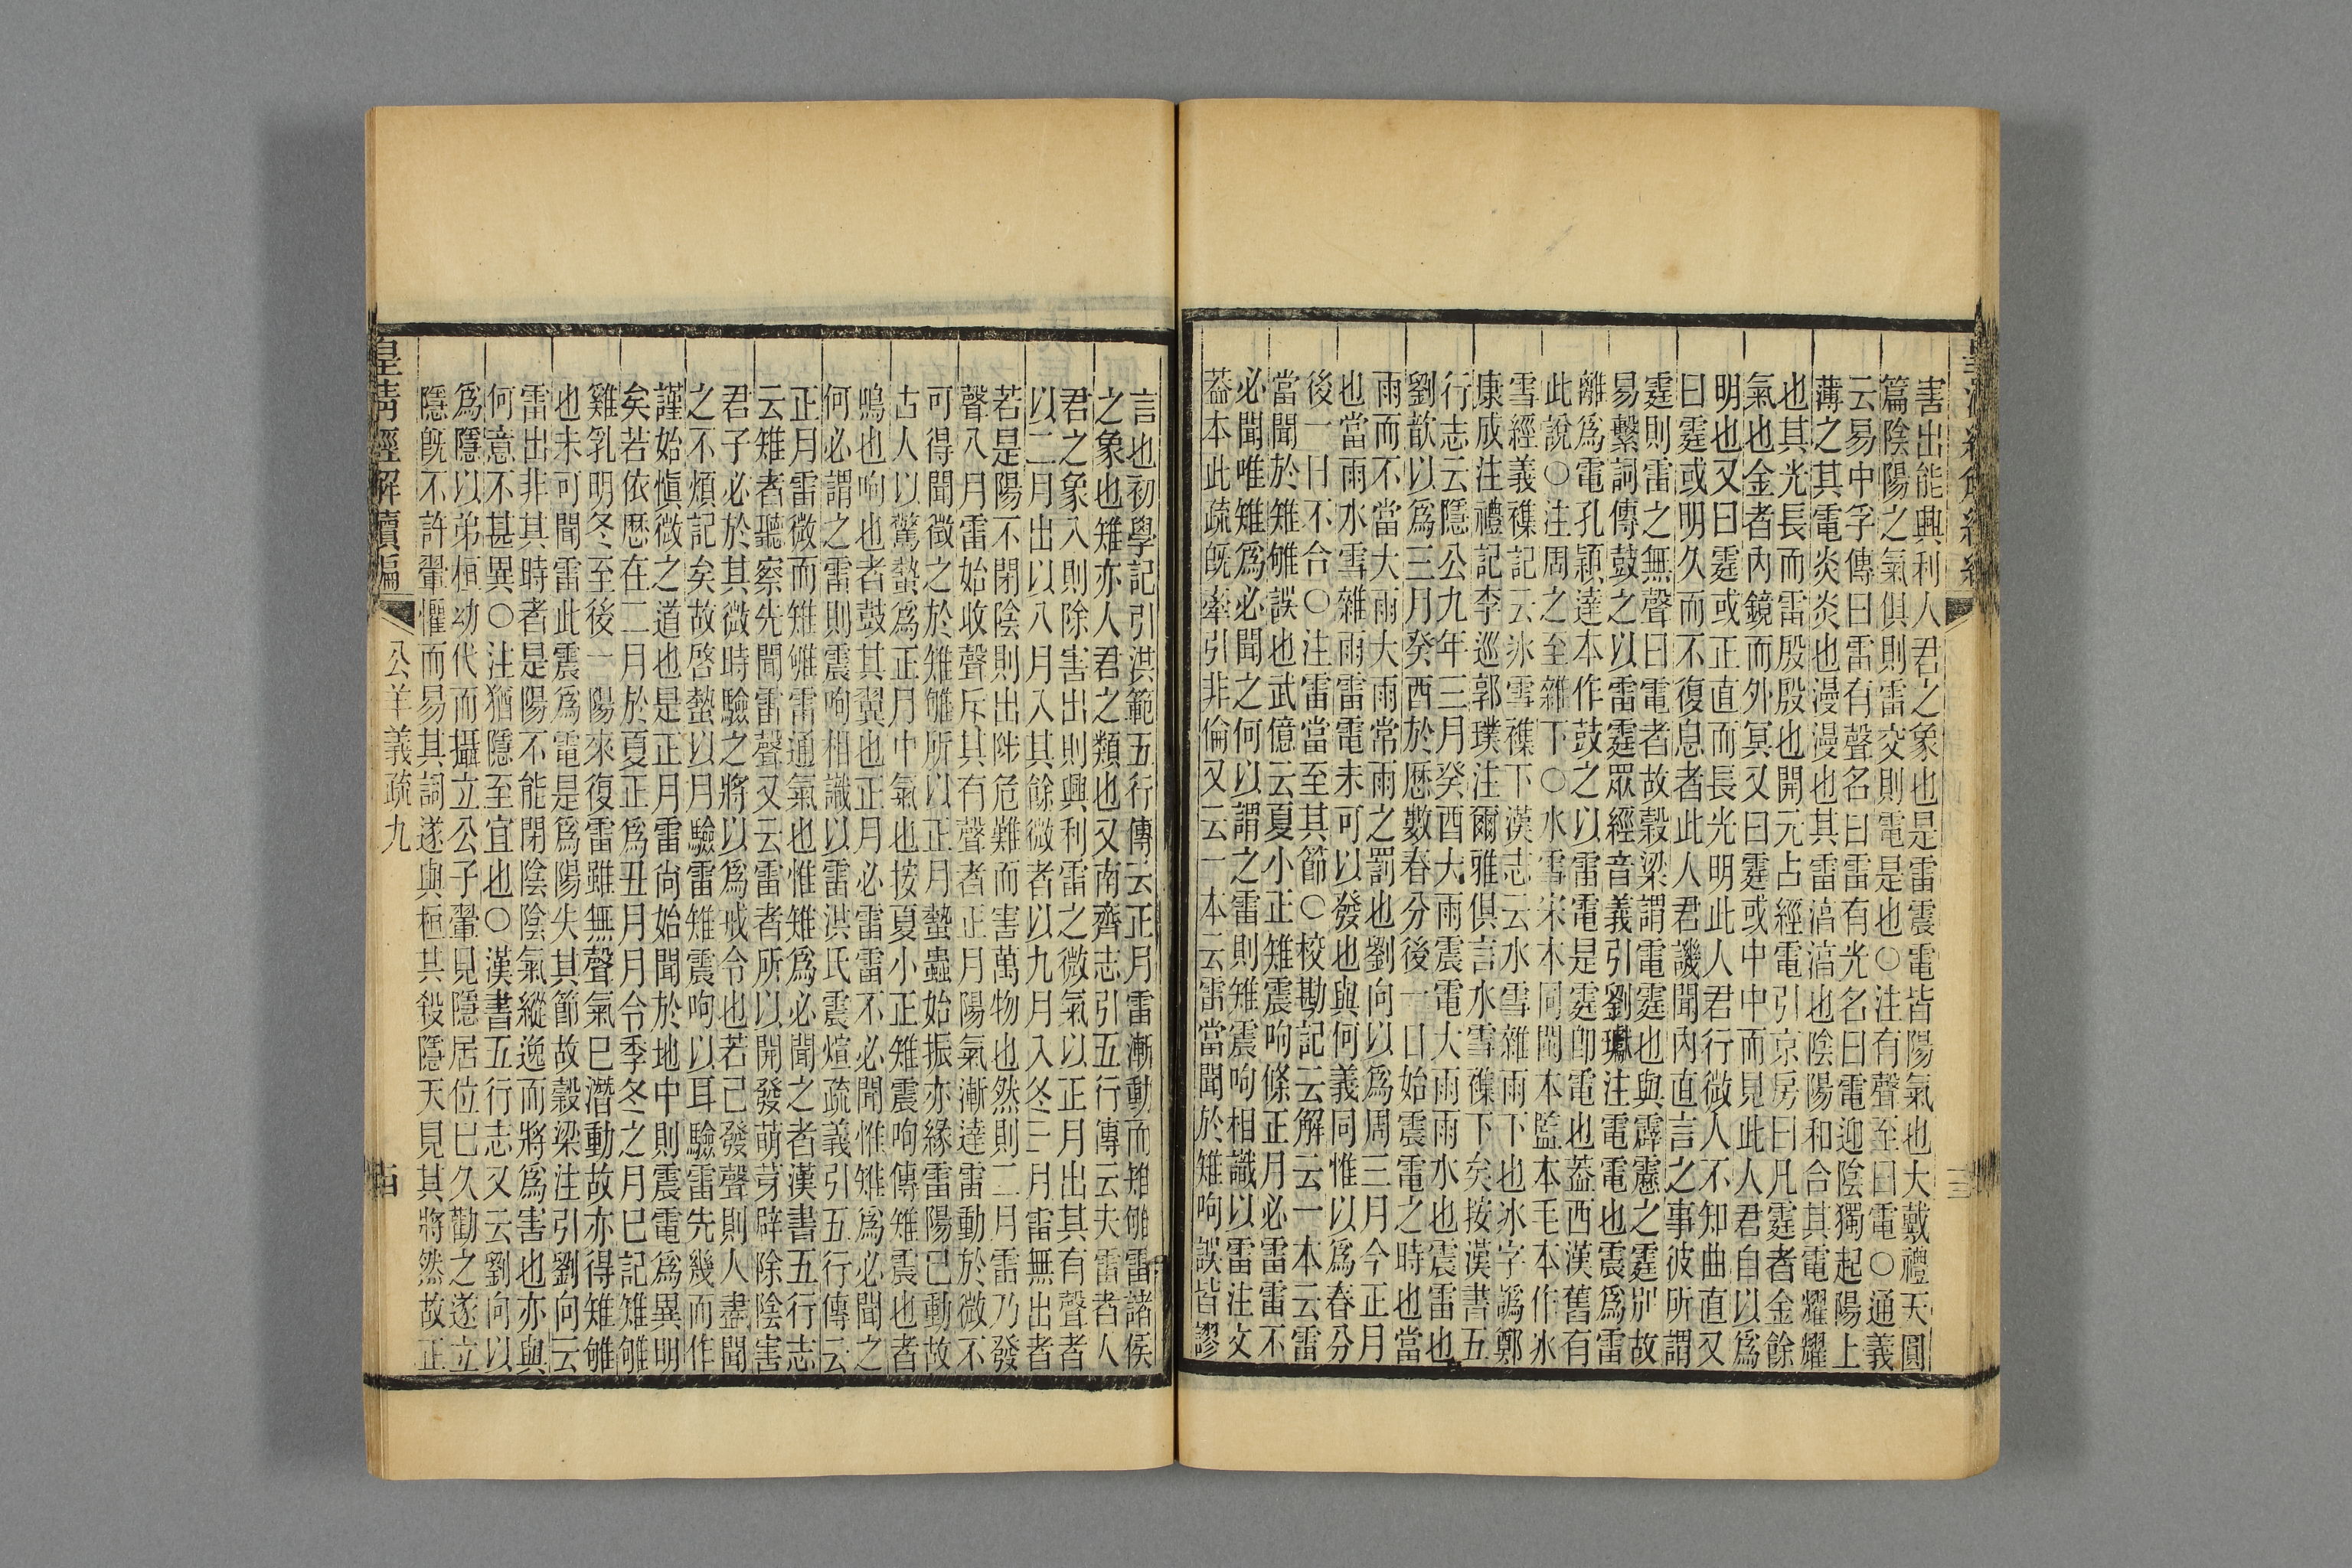 害出能興利人君之象也是雷震電皆陽氣也大戴禮天圓
篇陰陽之氣俱則雷交則電是也○注有聲至曰電○通義
云易中孚傳曰雷有聲名曰雷有光名曰電迎陰獨起陽上
薄之其電炎炎也漫漫也其雷滈滈也陰陽和合其電耀耀
也其光長而雷殷殷也開元占經電引京房曰凡霆者金餘
氣也金者內鏡而外冥又曰霆或中中而見此人君自以爲
明也又曰霆或正直而長光明此人君行微人不知曲直又
曰霆或明久而不復息者此人君譏聞內直言之事彼所謂
霆則雷之無聲曰電者故穀梁謂電霆也與霹靂之霆別故
易繫詞傳鼓之以雷霆眾經音義引劉瓛注電電也震爲雷
離爲電孔穎達本作鼓之以雷電是霆卽電也葢西漢舊有
此說○注周之至雜下○水雪宋本同閩本監本毛本作冰
雪經義襍記云冰雪襍下漢志云水雪雜雨下也冰字譌鄭
康成注禮記李巡郭璞注爾雅俱言水雪襍下矣按漢書五
行志云隱公九年三月癸酉大雨震電大雨雨水也震雷也
劉歆以爲三月癸酉於厯數春分後一日始震電之時也當
雨而不當大雨大雨常雨之罰也劉向以爲周三月今正月
也當雨水雪雜雨雷電未可以發也與何義同惟以爲春分
後一日不合○注雷當至其節○校勘記云解云一本云雷
當聞於雉雊誤也武億云夏小正雉震呴條正月必雷雷不
必聞唯雉爲必聞之何以謂之雷則雉震呴相識以雷注文
葢本此疏旣牽引非倫又云一本云雷當聞於雉呴誤皆謬
言也初學記引洪範五行傳云正月雷漸動而雉雊雷諸侯
之象也雉亦人君之類也又南齊志引五行傳云夫雷者人
君之象入則除害出則興利雷之微氣以正月出其有聲者
以二月出以八月入其餘微者以九月入冬三月雷無出者
若是陽不閉陰則出陟危難而害萬物也然則二月雷乃發
聲八月雷始收聲斥其有聲者正月陽氣漸達雷動於微不
可得聞徵之於雉雊所以正月蟄蟲始振亦緣雷陽已動故
古人以驚蟄爲正月中氣也按夏小正雉震呴傳雉震也者
鳴也呴也者鼓其翼也正月必雷雷不必聞惟雉爲必聞之
何必謂之雷則震呴相識以雷洪氏震煊疏義引五行傳云
正月雷微而雉雊雷通氣也惟雉爲必聞之者漢書五行志
云雉者聽察先聞雷聲又云雷者所以開發萌芽辟除陰害
君子必於其微時驗之將以爲戒令也若已發聲則人盡聞
之不煩記矣故啓蟄以月驗雷雉震呴以耳驗雷先幾而作
謹始愼微之道也是正月雷尙始聞於地中則震電爲異明
矣若依厯在二月於夏正爲丑月月令季冬之月已記雉雊
雞乳明冬至後一陽來復雷雖無聲氣巳潛動故亦得雉雊
也未可聞雷此震爲電是爲陽失其節故穀梁注引劉向云
雷出非其時者是陽不能閉陰陰氣縱逸而將爲害也亦與
何意不甚異○注猶隱至宜也○漢書五行志又云劉向以
爲隱以弟桓幼代而攝立公子翬見隱居位已久勸之遂立
隱旣不許翬懼而易其詞遂與桓共殺隱天見其將然故正
皇淸經解續編
公羊義疏九